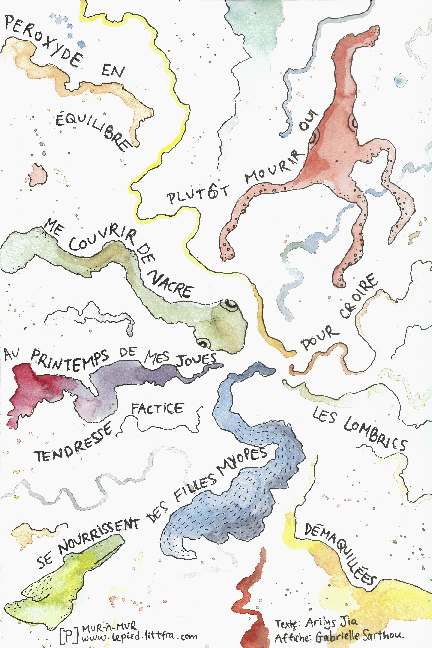 PEROXYDE EN
ÉQUILIBRE
PLUTÔT MOURIR OUI
ME COUVRIR DE NACRE
POUR CROIRE
AU PRINTEMPS DE MES JOUES
TENDRESSE FACTICE
LES LOMBRICS
SE NOURRISSENT DES FILLES MYOPES
DÉMAQUILÉES
[P] MUR-À-MUR
www.lepied.littfra.com
Texte: Arilys Jia
Affiche: Gabrielle Sarthou.